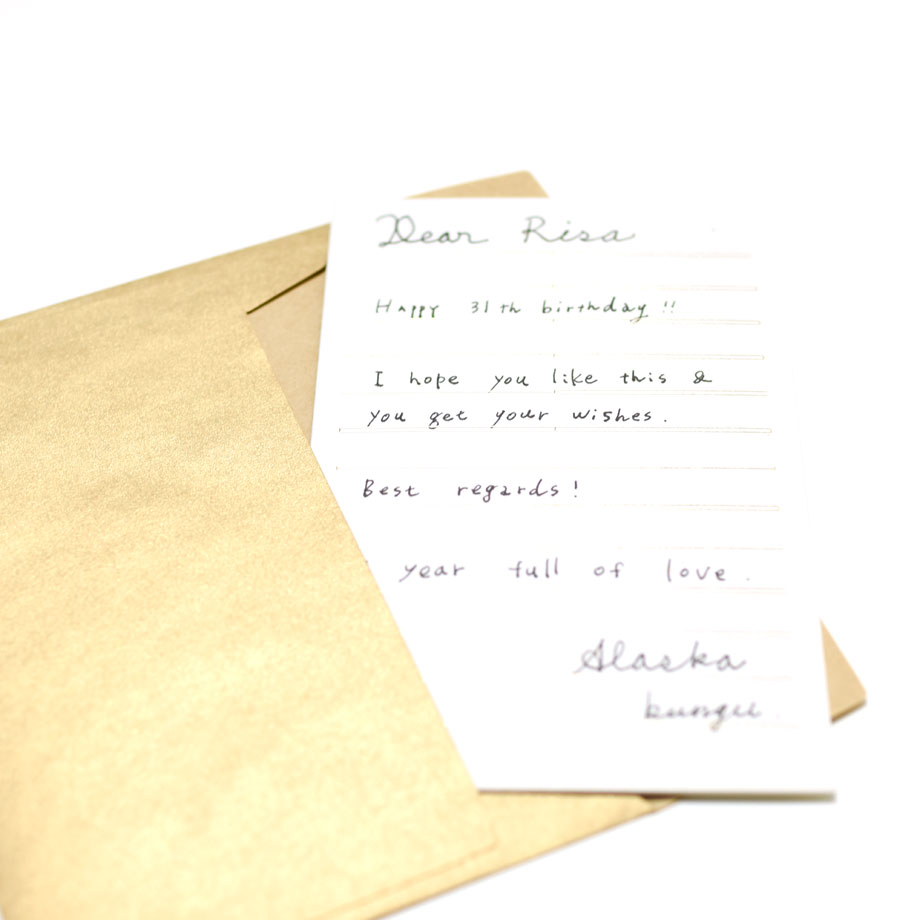 Dear Risa
Happy 31th birthday !!
I hope you like this &
you get your wishes.
Best regards!
year full of love.
Alaska
bungu